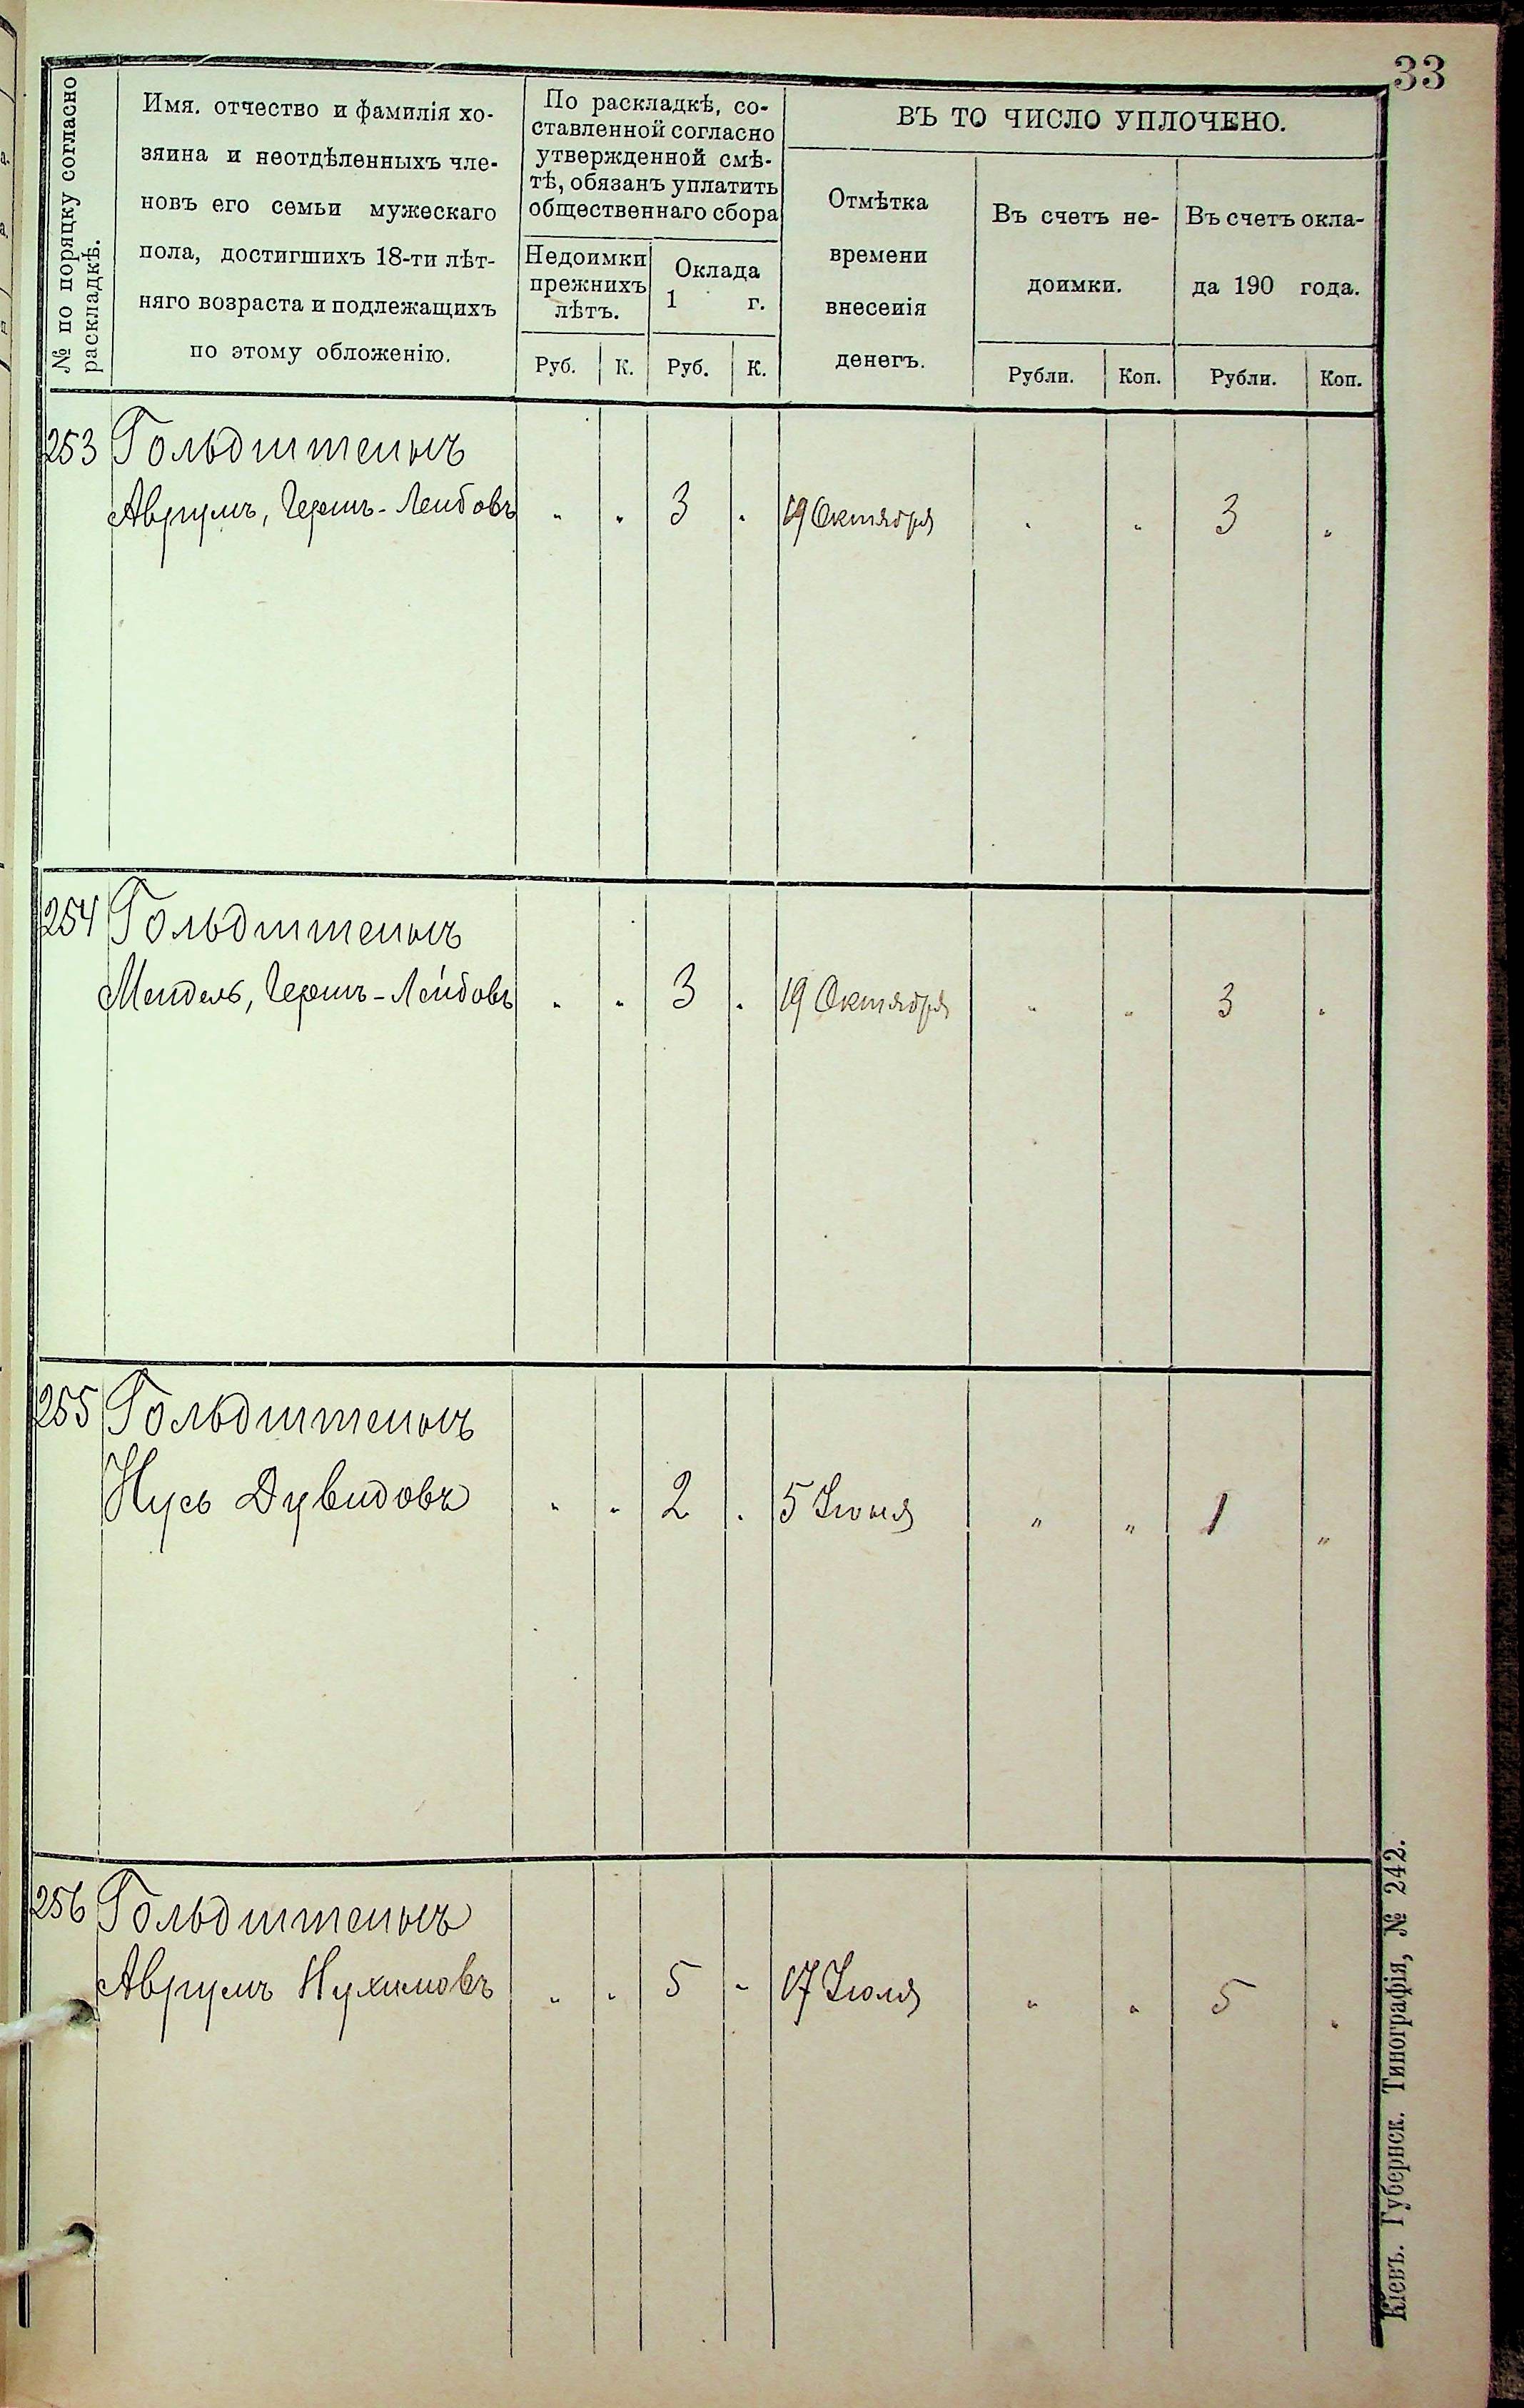 33
№ по порядку согласно
раскладкѣ.
Имя. отчество и фамилія хо-
зяина и неотдѣленныхъ чле-
новъ его семьи мужескаго
пола, достигшихъ 18-ти лѣт-
няго возраста и подлежащихъ
по этому обложенію.
По раскладкѣ, со-
ставленной согласно
утвержденной смѣ-
тѣ, обязанъ уплатить
общественнаго сбора
Недоимки
прежнихъ
лѣтъ.
Оклада
1 г.
Руб. К. Руб. К.
ВЪ ТО ЧИСЛО УПЛОЧЕНО.
Отмѣтка
времени
внесенія
денегъ.
Въ счетъ не-
доимки.
Въ счетъ окла-
да 190 года.
Рубли. Коп. Рубли. Коп.
253 Гольдштейнъ
Аврумъ, Гершъ-Лейбовъ " " 3 " 19 Октября " " 3 "
254 Гольдштейнъ
Мендель, Гершъ-Лейбовъ " " 3 " 19 Октября " " 3 "
255 Гольдштейнъ
Нусь Дувидовъ " " 2 " 5 Іюня " " 1 "
256 Гольдштейнъ
Аврумъ Нухимовъ " " 5 " 17 Іюля " " 5 "
Кіевъ. Губернск. Типографія, № 242.